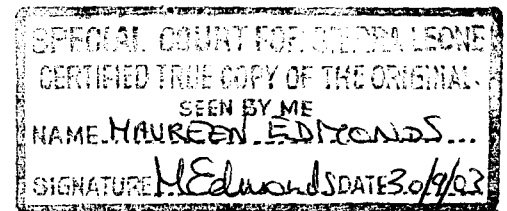 SPECIAL COURT FOR SIERRA LEONE
CERTIFIED TRUE COPY OF THE ORIGINAL
SEEN BY ME
NAME MAUREEN EDMONDS...
SIGNATURE MEdmonds DATE 30/9/03